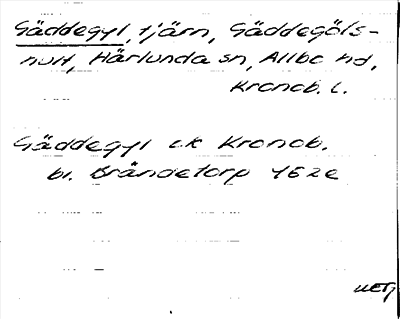 Gäddegyl, tjärn, Gäddegöls-
hult, Härlunda sn, Allbo hd,
Kronob. l.
Gäddegyl ek Kronob.
bl. Brändetorp 4E2e